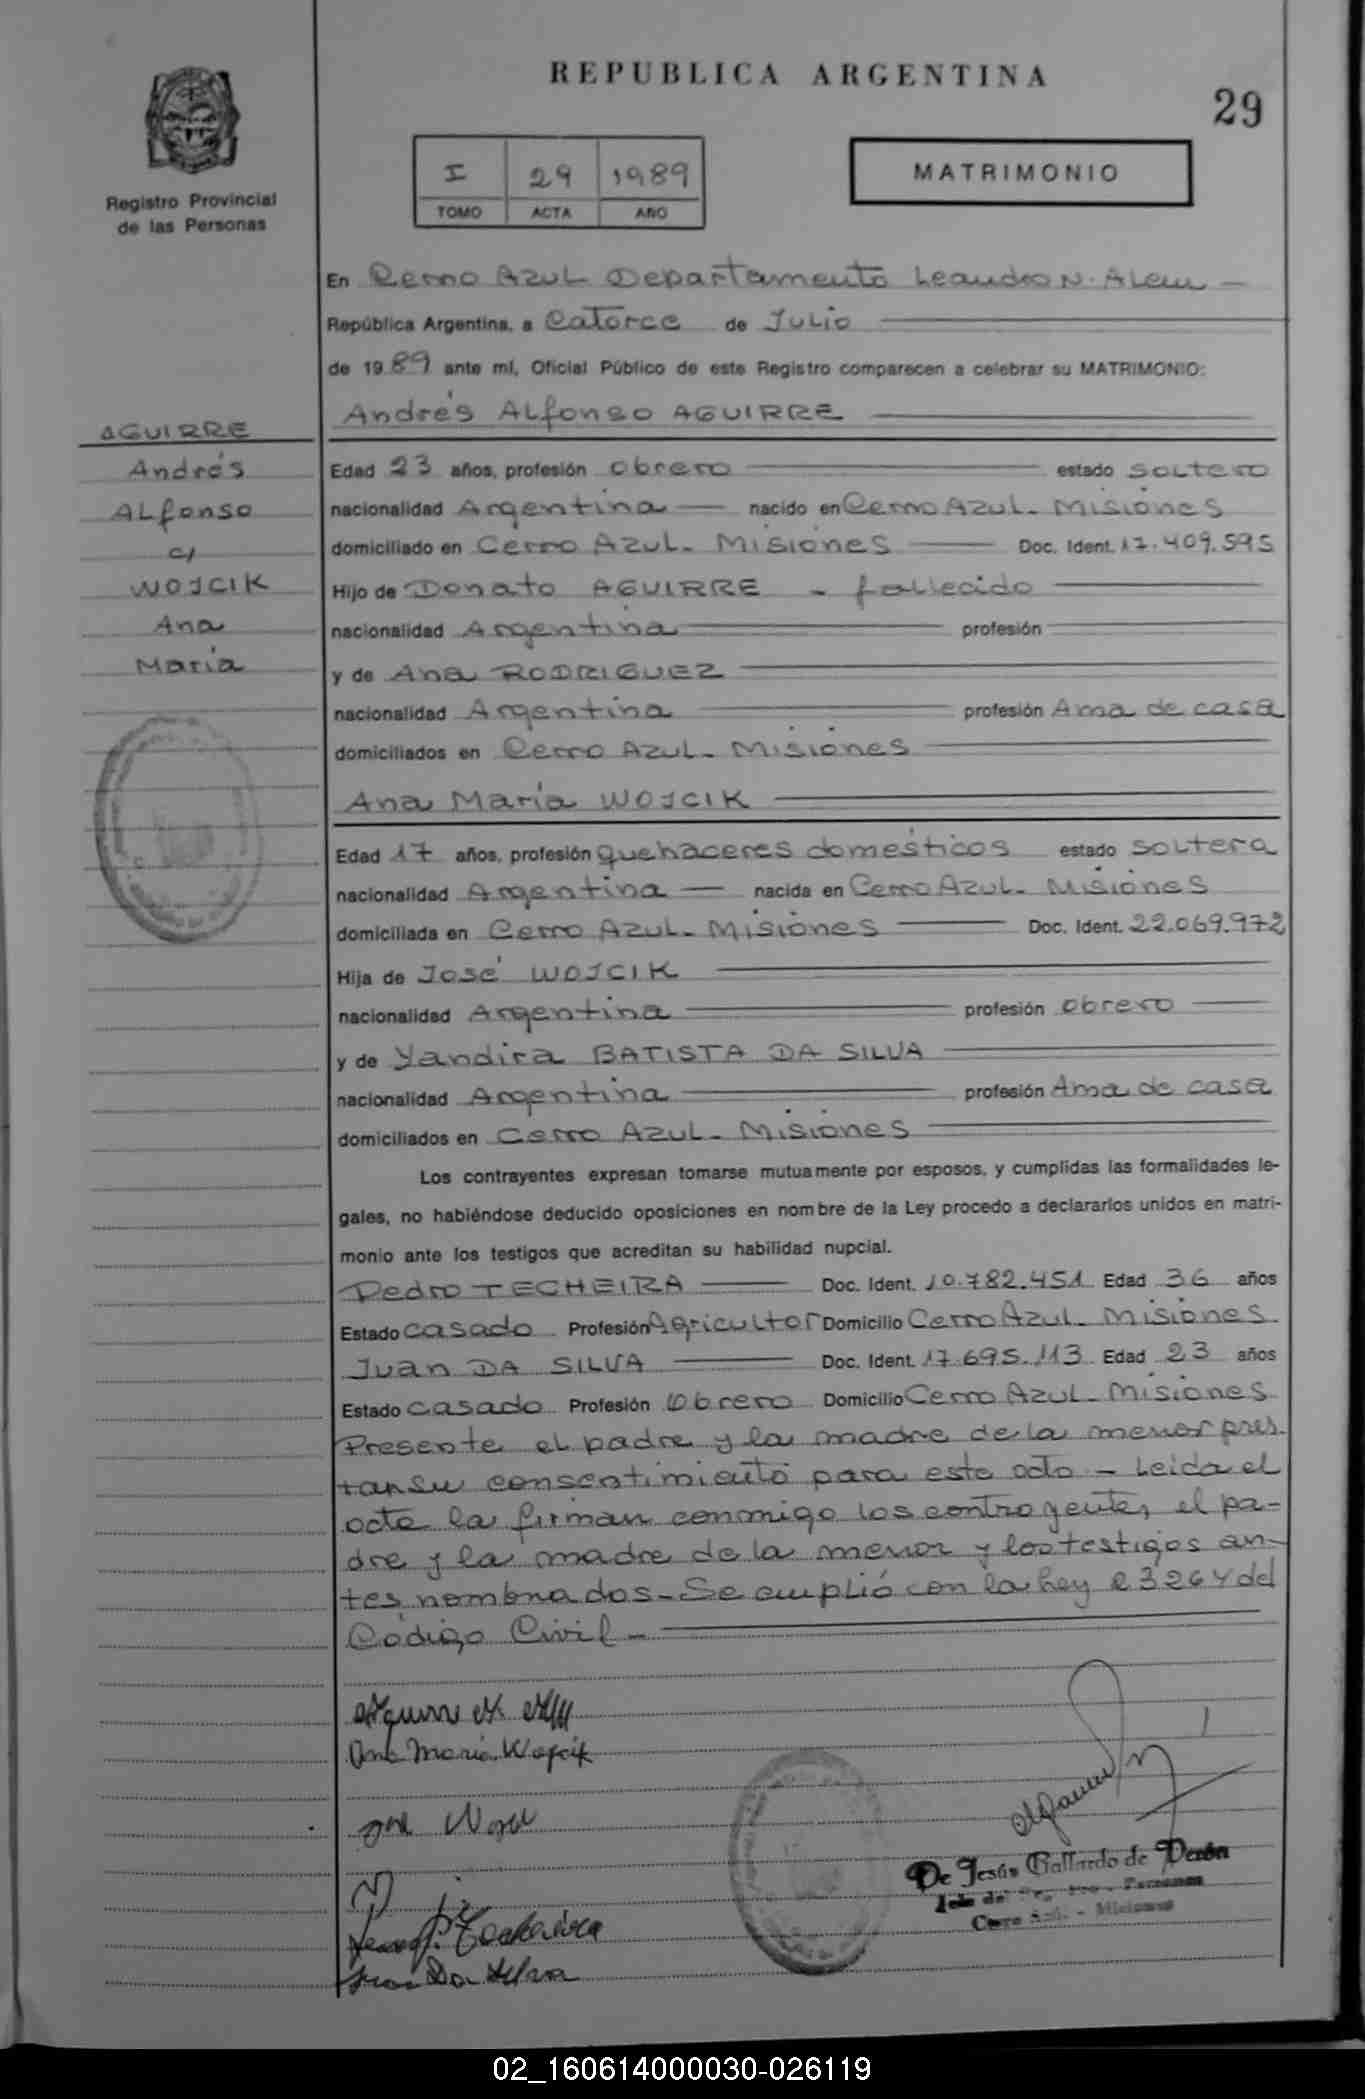 REPUBLICA ARGENTINA
29
Registro Provincial
de las Personas
I 29 1989
TOMO ACTA AÑO
MATRIMONIO
En Cerro AZUL Departamento Leandro N. ALem -
República Argentina, a Catorce de JuLio
de 19 89 ante mí, Oficial Público de este Registro comparecen a celebrar su MATRIMONIO:
Andrés ALfonso AGUIRRE
AGUIRRE
Andrés
ALfonso
c/
WOJCIK
Ana
María
Edad 23 años, profesión obrero estado soLtero
nacionalidad Argentina nacido en Cerro AZUL. Misiones
domiciliado en Cerro AZUL. Misiones Doc. Ident. 17.409.595
Hijo de Donato AGUIRRE - faLLecido
nacionalidad Argentina profesión
y de Ana RODRIGUEZ
nacionalidad Argentina profesión Ama de casa
domiciliados en Cerro AZUL. Misiones
Ana María WOJCIK
Edad 17 años, profesión quehaceres domésticos estado soLtera
nacionalidad Argentina nacida en Cerro AZUL. Misiones
domiciliada en Cerro AZUL. Misiones Doc. Ident. 22.069.972
Hija de José WOJCIK
nacionalidad Argentina profesión obrero
y de Yandira BATISTA DA SILVA
nacionalidad Argentina profesión Ama de casa
domiciliados en Cerro AZUL. Misiones
Los contrayentes expresan tomarse mutuamente por esposos, y cumplidas las formalidades le-
gales, no habiéndose deducido oposiciones en nombre de la Ley procedo a declararlos unidos en matri-
monio ante los testigos que acreditan su habilidad nupcial.
Pedro TECHEIRA Doc. Ident. 10.782.451 Edad 36 años
Estado casado Profesión AgricuLtor Domicilio Cerro AZUL. Misiones
Juan DA SILVA Doc. Ident. 17.695.113 Edad 23 años
Estado casado Profesión Obrero Domicilio Cerro AZUL. Misiones
Presente el padre y la madre de la menor pres
tan su consentimiento para este acto - Leída el
acta la firman conmigo los contrayentes, el pa-
dre y la madre de la menor y los testigos an-
tes nombrados - Se cumplió con la Ley 23264 del
Código Civil -
Aguirre A.
Ana María Wojcik
P. Techeira
Juan Da Silva
De Jesús Gallardo de Perón
Cerro Azul - Misiones
02_160614000030-026119